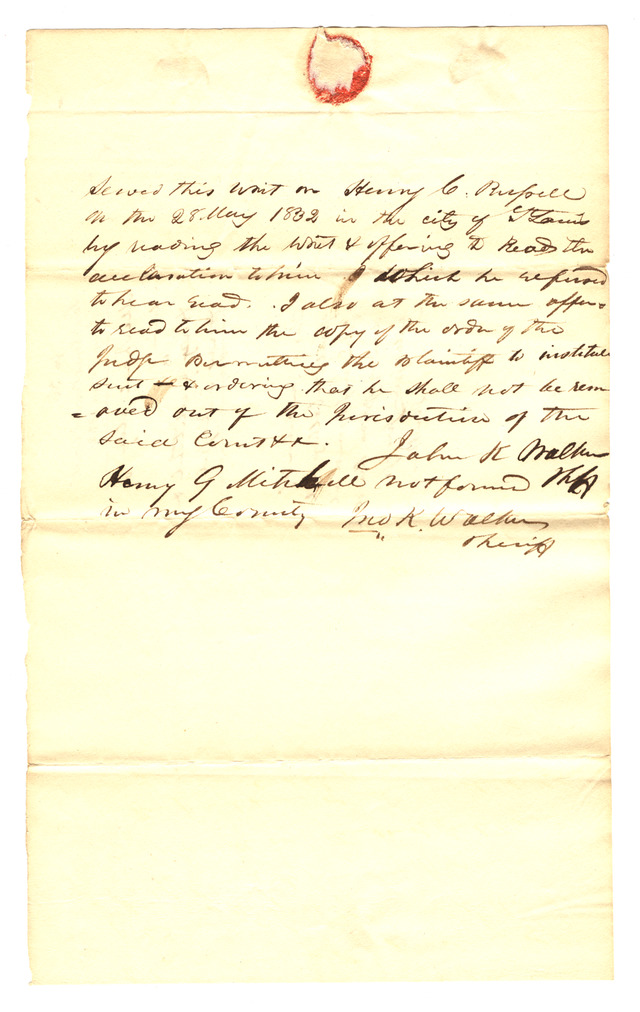 Served this writ on Henry C. Russell
on the 28. May 1832 in the city of St Louis
by reading the writ & offering to Read the
declaration to him which he refused
to hear read. I also at the same offer=
to read to him the copy of the order of the
Judge Permitting the Plaintiff to institute
suit & ordering that he shall not be rem
=oved out of the Jurisdiction of the
said Court &c. John K Walker
Henry G Mitchell not found Shff
in my County Jno K. Walker
Sheriff